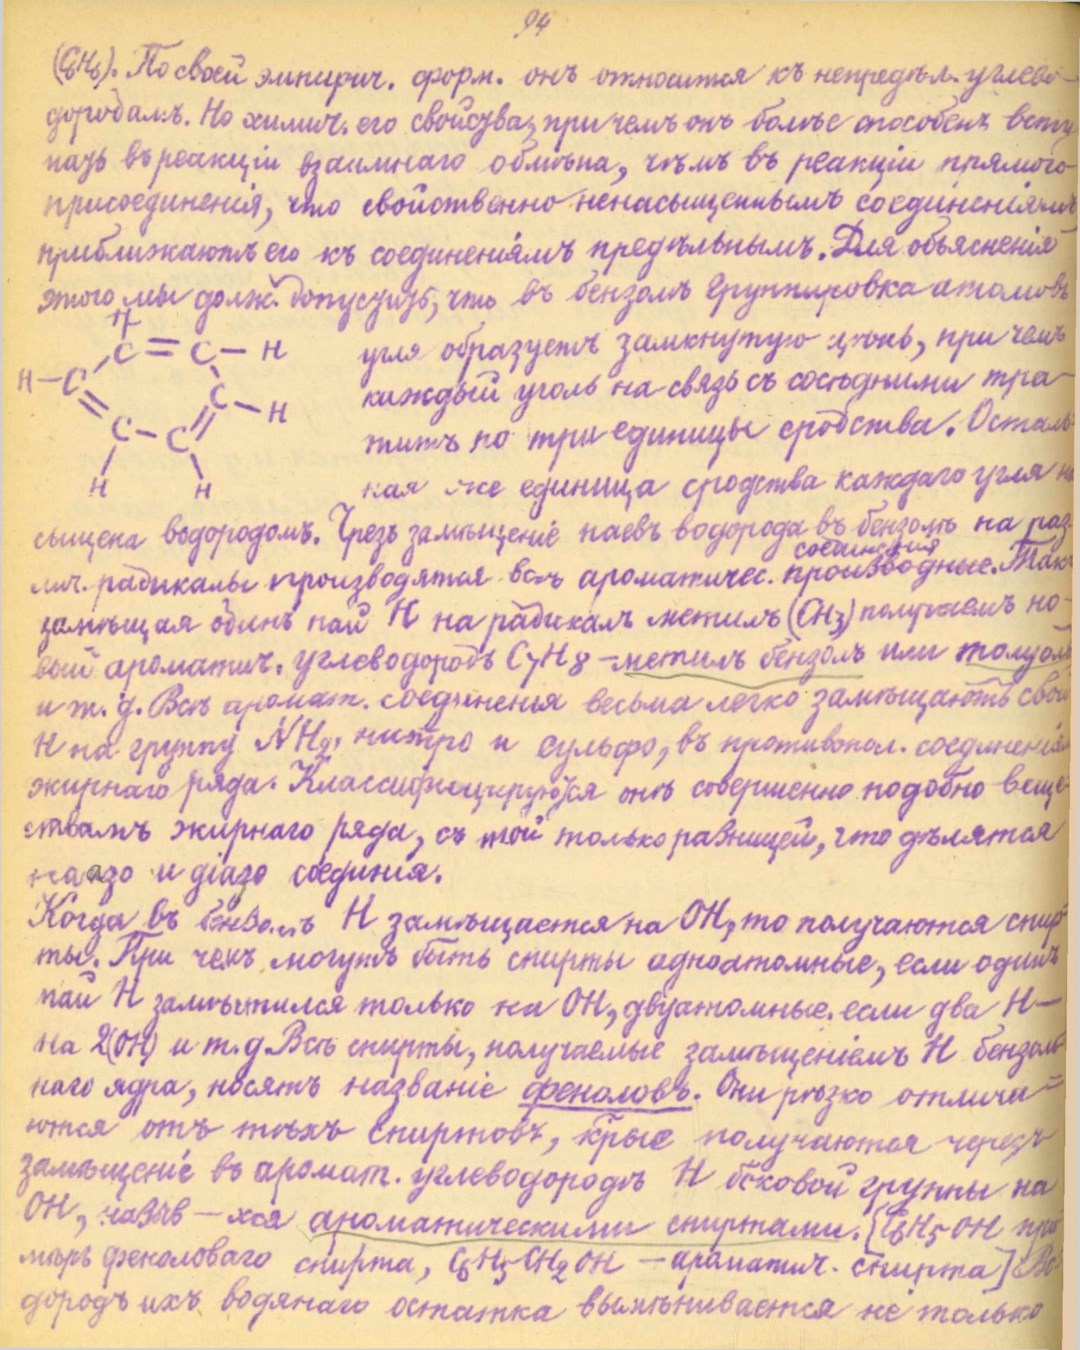 94
(C6H6). По своей эмпирич. форм. онъ относится къ непредѣл. углево-
дородамъ. Но химич. его свойства, при чемъ онъ болѣе способенъ всту
пать въ реакціи взаимнаго обмѣна, чѣмъ въ реакціи прямого
присоединенія, что свойственно ненасыщеннымъ соединеніямъ
приближаютъ его къ соединеніямъ предѣльнымъ. Для объясненія
этого мы долж. допустить, что въ бензолѣ группировка атомовъ
H
C = C - H
H - C
C - H
C - C
H H
угля образуетъ замкнутую цѣпь, при чемъ
каждый уголь на связь съ сосѣдними тра-
титъ по три единицы сродства. Осталь
ная же единица сродства каждаго угля на
сыщена водородомъ. Чрезъ замѣщеніе паевъ водорода въ бензолѣ на раз
лич. радикалы производятся всѣ ароматичес. производные. Такъ
соединенія
замѣщая одинъ пай H на радикалъ метилъ (CH3) получаемъ но-
вый ароматич. углеводородъ C7H8 - метилъ бензолъ или толуолъ
и т. д. Всѣ аромат. соединенья весьма легко замѣщаютъ свой
H на группу NH2, нитро и сульфо, въ противопол. соединенія
жирнаго ряда. Классифицируются онѣ совершенно подобно веще-
ствамъ жирнаго ряда, съ той только разницей, что дѣлятся
на азо и діазо соединія.
Когда въ бензолѣ H замѣщается на OH, то получаются спир
ты. При чемъ могутъ быть спирты одноатомные, если одинъ
пай H замѣстился только на OH, двуатомные. если два H —
на 2(OH) и т. д. Всѣ спирты, получаемые замѣщеніемъ H бензоль
наго ядра, носятъ названіе феноловъ. Они рѣзко отлича-
ются отъ тѣхъ спиртовъ, к̃рые получаются черезъ
замѣщеніе въ аромат. углеводородѣ H боковой группы на
OH, назыв - хся ароматическими спиртами. [C6H5OH при
мѣръ феноловаго спирта, C6H5CH2OH - ароматич. спирта] Во
дородъ ихъ водянаго остатка вымѣнивается не только